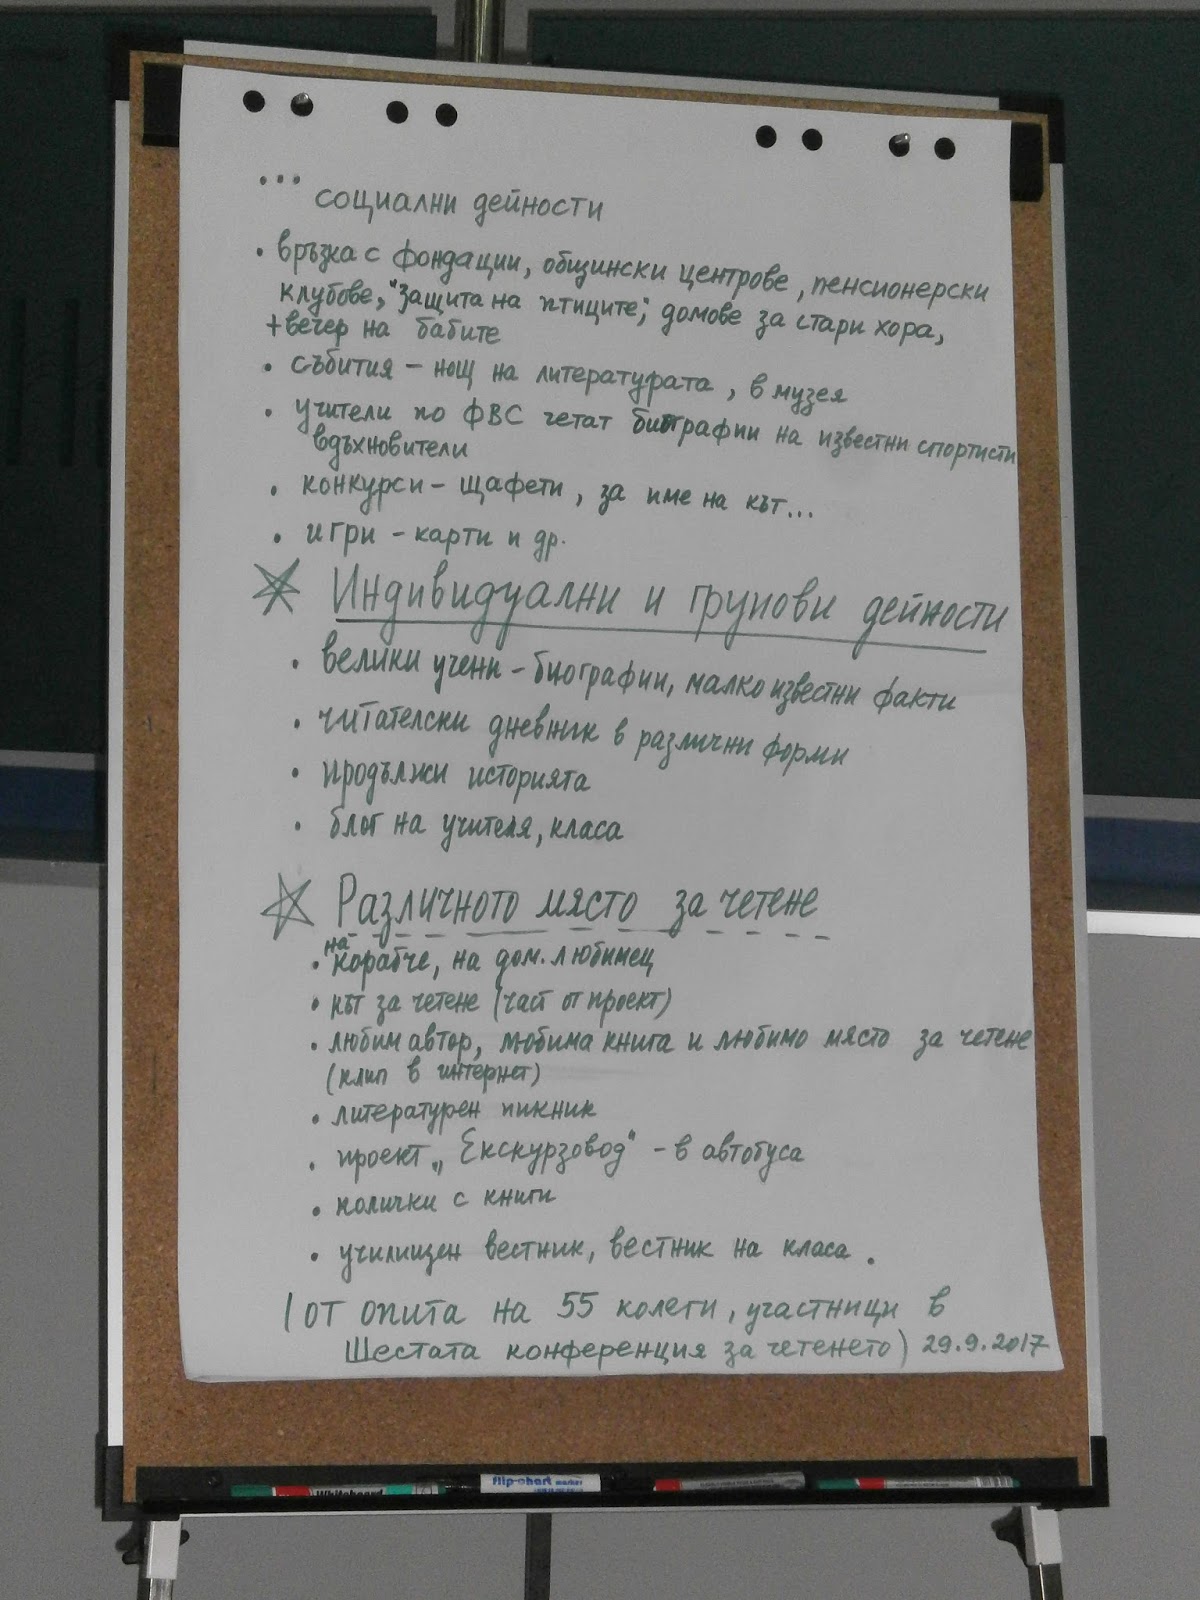 ... социални дейности
• връзка с фондации, общински центрове, пенсионерски
клубове, "Защита на птиците", домове за стари хора,
+вечер на бабите
• събития – нощ на литературата, в музея
• учители по ФВС четат биографии на известни спортисти
вдъхновители
• конкурси – щафети, за име на кът...
• игри – карти и др.
Индивидуални и групови дейности
• велики учени – биографии, малко известни факти
• читателски дневник в различни форми
• продължи историята
• блог на учителя, класа
Различното място за четене
• на корабче, на дом. любимец
• кът за четене (част от проект)
• любим автор, любима книга и любимо място за четене
(клип в интернет)
• литературен пикник
• проект „Екскурзовод" – в автобуса
• полички с книги
• училищен вестник, вестник на класа.
(от опита на 55 колеги, участници в
Шестата конференция за четенето) 29.9.2017
Whiteboard
flip-chart marker